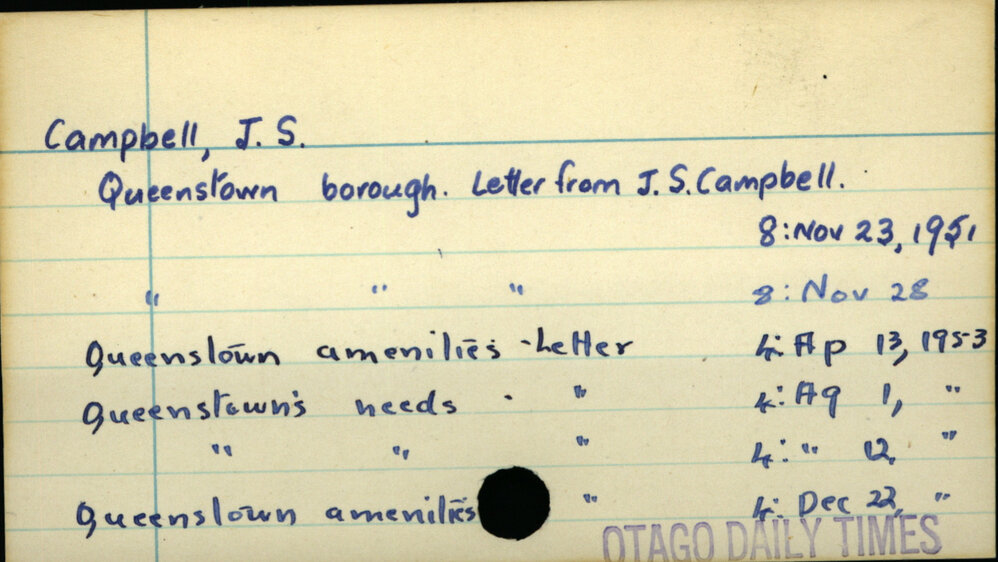 Campbell, J. S.
Queenstown borough. Letter from J. S. Campbell.
8: Nov 23, 1951
" " " 8: Nov 28
Queenstown amenities - Letter 4: Ap 13, 1953
Queenstown's needs - " 4: Ag 1, "
" " " 4: " 12, "
Queenstown amenities " 4: Dec 22, "
OTAGO DAILY TIMES